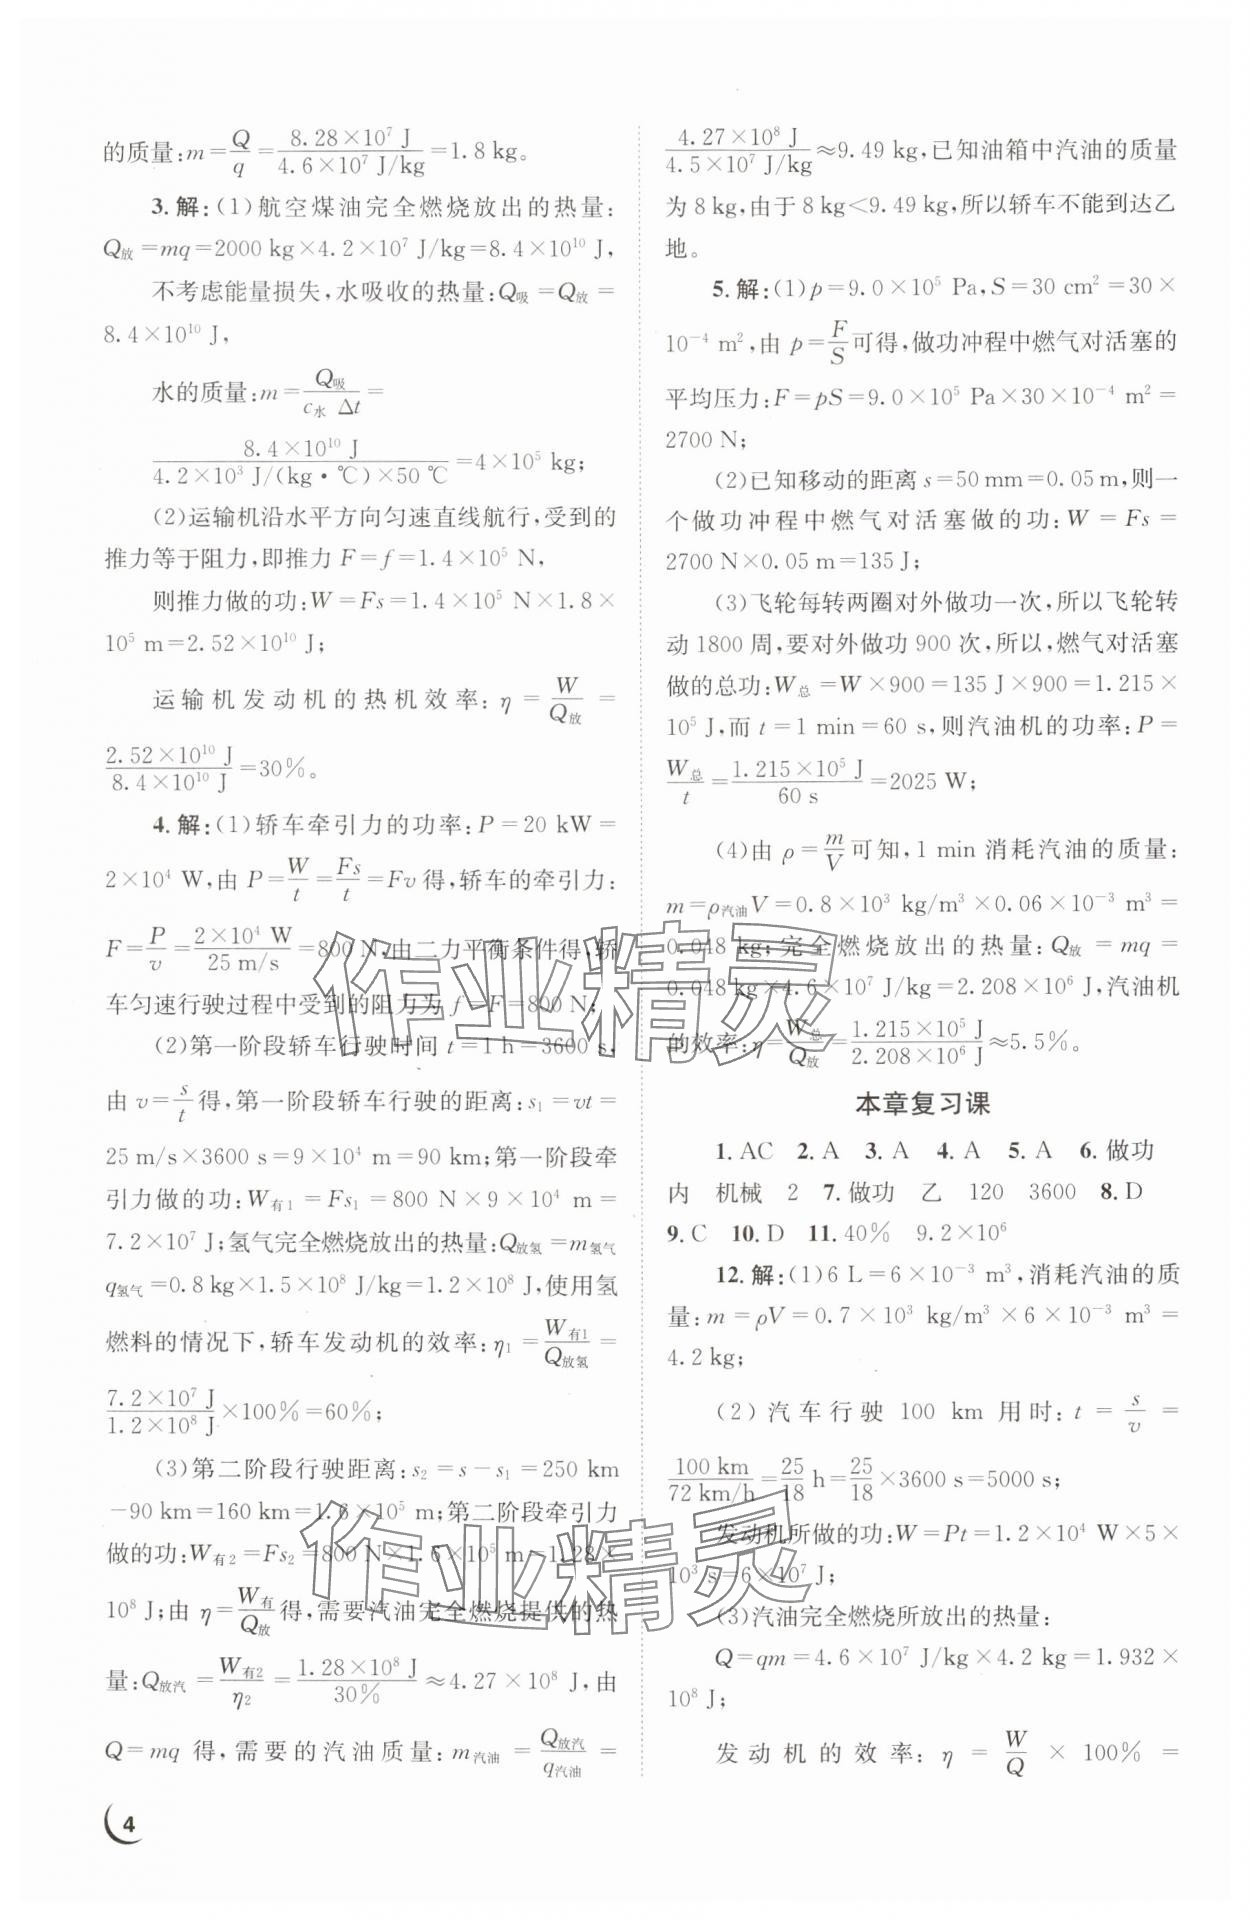 的质量:m=Q/q=8.28×10⁷ J/4.6×10⁷ J/kg=1.8 kg。
3.解:(1)航空煤油完全燃烧放出的热量:
Q放=mq=2000 kg×4.2×10⁷ J/kg=8.4×10¹⁰ J,
不考虑能量损失,水吸收的热量:Q吸=Q放=
8.4×10¹⁰ J,
水的质量:m=Q吸/c水 Δt=
8.4×10¹⁰ J/4.2×10³ J/(kg·℃)×50 ℃=4×10⁵ kg;
(2)运输机沿水平方向匀速直线航行,受到的
推力等于阻力,即推力 F=f=1.4×10⁵ N,
则推力做的功:W=Fs=1.4×10⁵ N×1.8×
10⁵ m=2.52×10¹⁰ J;
运输机发动机的热机效率:η=W/Q放=
2.52×10¹⁰ J/8.4×10¹⁰ J=30%。
4.解:(1)轿车牵引力的功率:P=20 kW=
2×10⁴ W,由 P=W/t=Fs/t=Fv 得,轿车的牵引力:
F=P/v=2×10⁴ W/25 m/s=800 N,由二力平衡条件得,轿
车匀速行驶过程中受到的阻力为 f=F=800 N;
(2)第一阶段轿车行驶时间 t=1 h=3600 s,
由 v=s/t得,第一阶段轿车行驶的距离:s₁=vt=
25 m/s×3600 s=9×10⁴ m=90 km;第一阶段牵
引力做的功:W有1=Fs₁=800 N×9×10⁴ m=
7.2×10⁷ J;氢气完全燃烧放出的热量:Q放氢=m氢气
q氢气=0.8 kg×1.5×10⁸ J/kg=1.2×10⁸ J,使用氢
燃料的情况下,轿车发动机的效率:η₁=W有1/Q放氢=
7.2×10⁷ J/1.2×10⁸ J×100%=60%;
(3)第二阶段行驶距离:s₂=s-s₁=250 km
-90 km=160 km=1.6×10⁵ m;第二阶段牵引力
做的功:W有2=Fs₂=800 N×1.6×10⁵ m=1.28×
10⁸ J;由 η=W有/Q放得,需要汽油完全燃烧提供的热
量:Q放汽=W有2/η₂=1.28×10⁸ J/30%≈4.27×10⁸ J,由
Q=mq 得,需要的汽油质量:m汽油=Q放汽/q汽油=
4
4.27×10⁸ J/4.5×10⁷ J/kg≈9.49 kg,已知油箱中汽油的质量
为 8 kg,由于 8 kg<9.49 kg,所以轿车不能到达乙
地。
5.解:(1)p=9.0×10⁵ Pa,S=30 cm²=30×
10⁻⁴ m²,由 p=F/S可得,做功冲程中燃气对活塞的
平均压力:F=pS=9.0×10⁵ Pa×30×10⁻⁴ m²=
2700 N;
(2)已知移动的距离 s=50 mm=0.05 m,则一
个做功冲程中燃气对活塞做的功:W=Fs=
2700 N×0.05 m=135 J;
(3)飞轮每转两圈对外做功一次,所以飞轮转
动 1800 周,要对外做功 900 次,所以,燃气对活塞
做的总功:W总=W×900=135 J×900=1.215×
10⁵ J,而 t=1 min=60 s,则汽油机的功率:P=
W总/t=1.215×10⁵ J/60 s=2025 W;
(4)由 ρ=m/V可知,1 min 消耗汽油的质量:
m=ρ汽油V=0.8×10³ kg/m³×0.06×10⁻³ m³=
0.048 kg;完全燃烧放出的热量:Q放=mq=
0.048 kg×4.6×10⁷ J/kg=2.208×10⁶ J,汽油机
的效率:η=W总/Q放=1.215×10⁵ J/2.208×10⁶ J≈5.5%。
本章复习课
1. AC 2. A 3. A 4. A 5. A 6. 做功
内 机械 2 7. 做功 乙 120 3600 8. D
9. C 10. D 11. 40% 9.2×10⁶
12.解:(1)6 L=6×10⁻³ m³,消耗汽油的质
量:m=ρV=0.7×10³ kg/m³×6×10⁻³ m³=
4.2 kg;
(2)汽车行驶 100 km 用时:t=s/v=
100 km/72 km/h=25/18 h=25/18×3600 s=5000 s;
发动机所做的功:W=Pt=1.2×10⁴ W×5×
10³ s=6×10⁷ J;
(3)汽油完全燃烧所放出的热量:
Q=qm=4.6×10⁷ J/kg×4.2 kg=1.932×
10⁸ J;
发动机的效率:η=W/Q×100%=
作业精灵
作业精灵